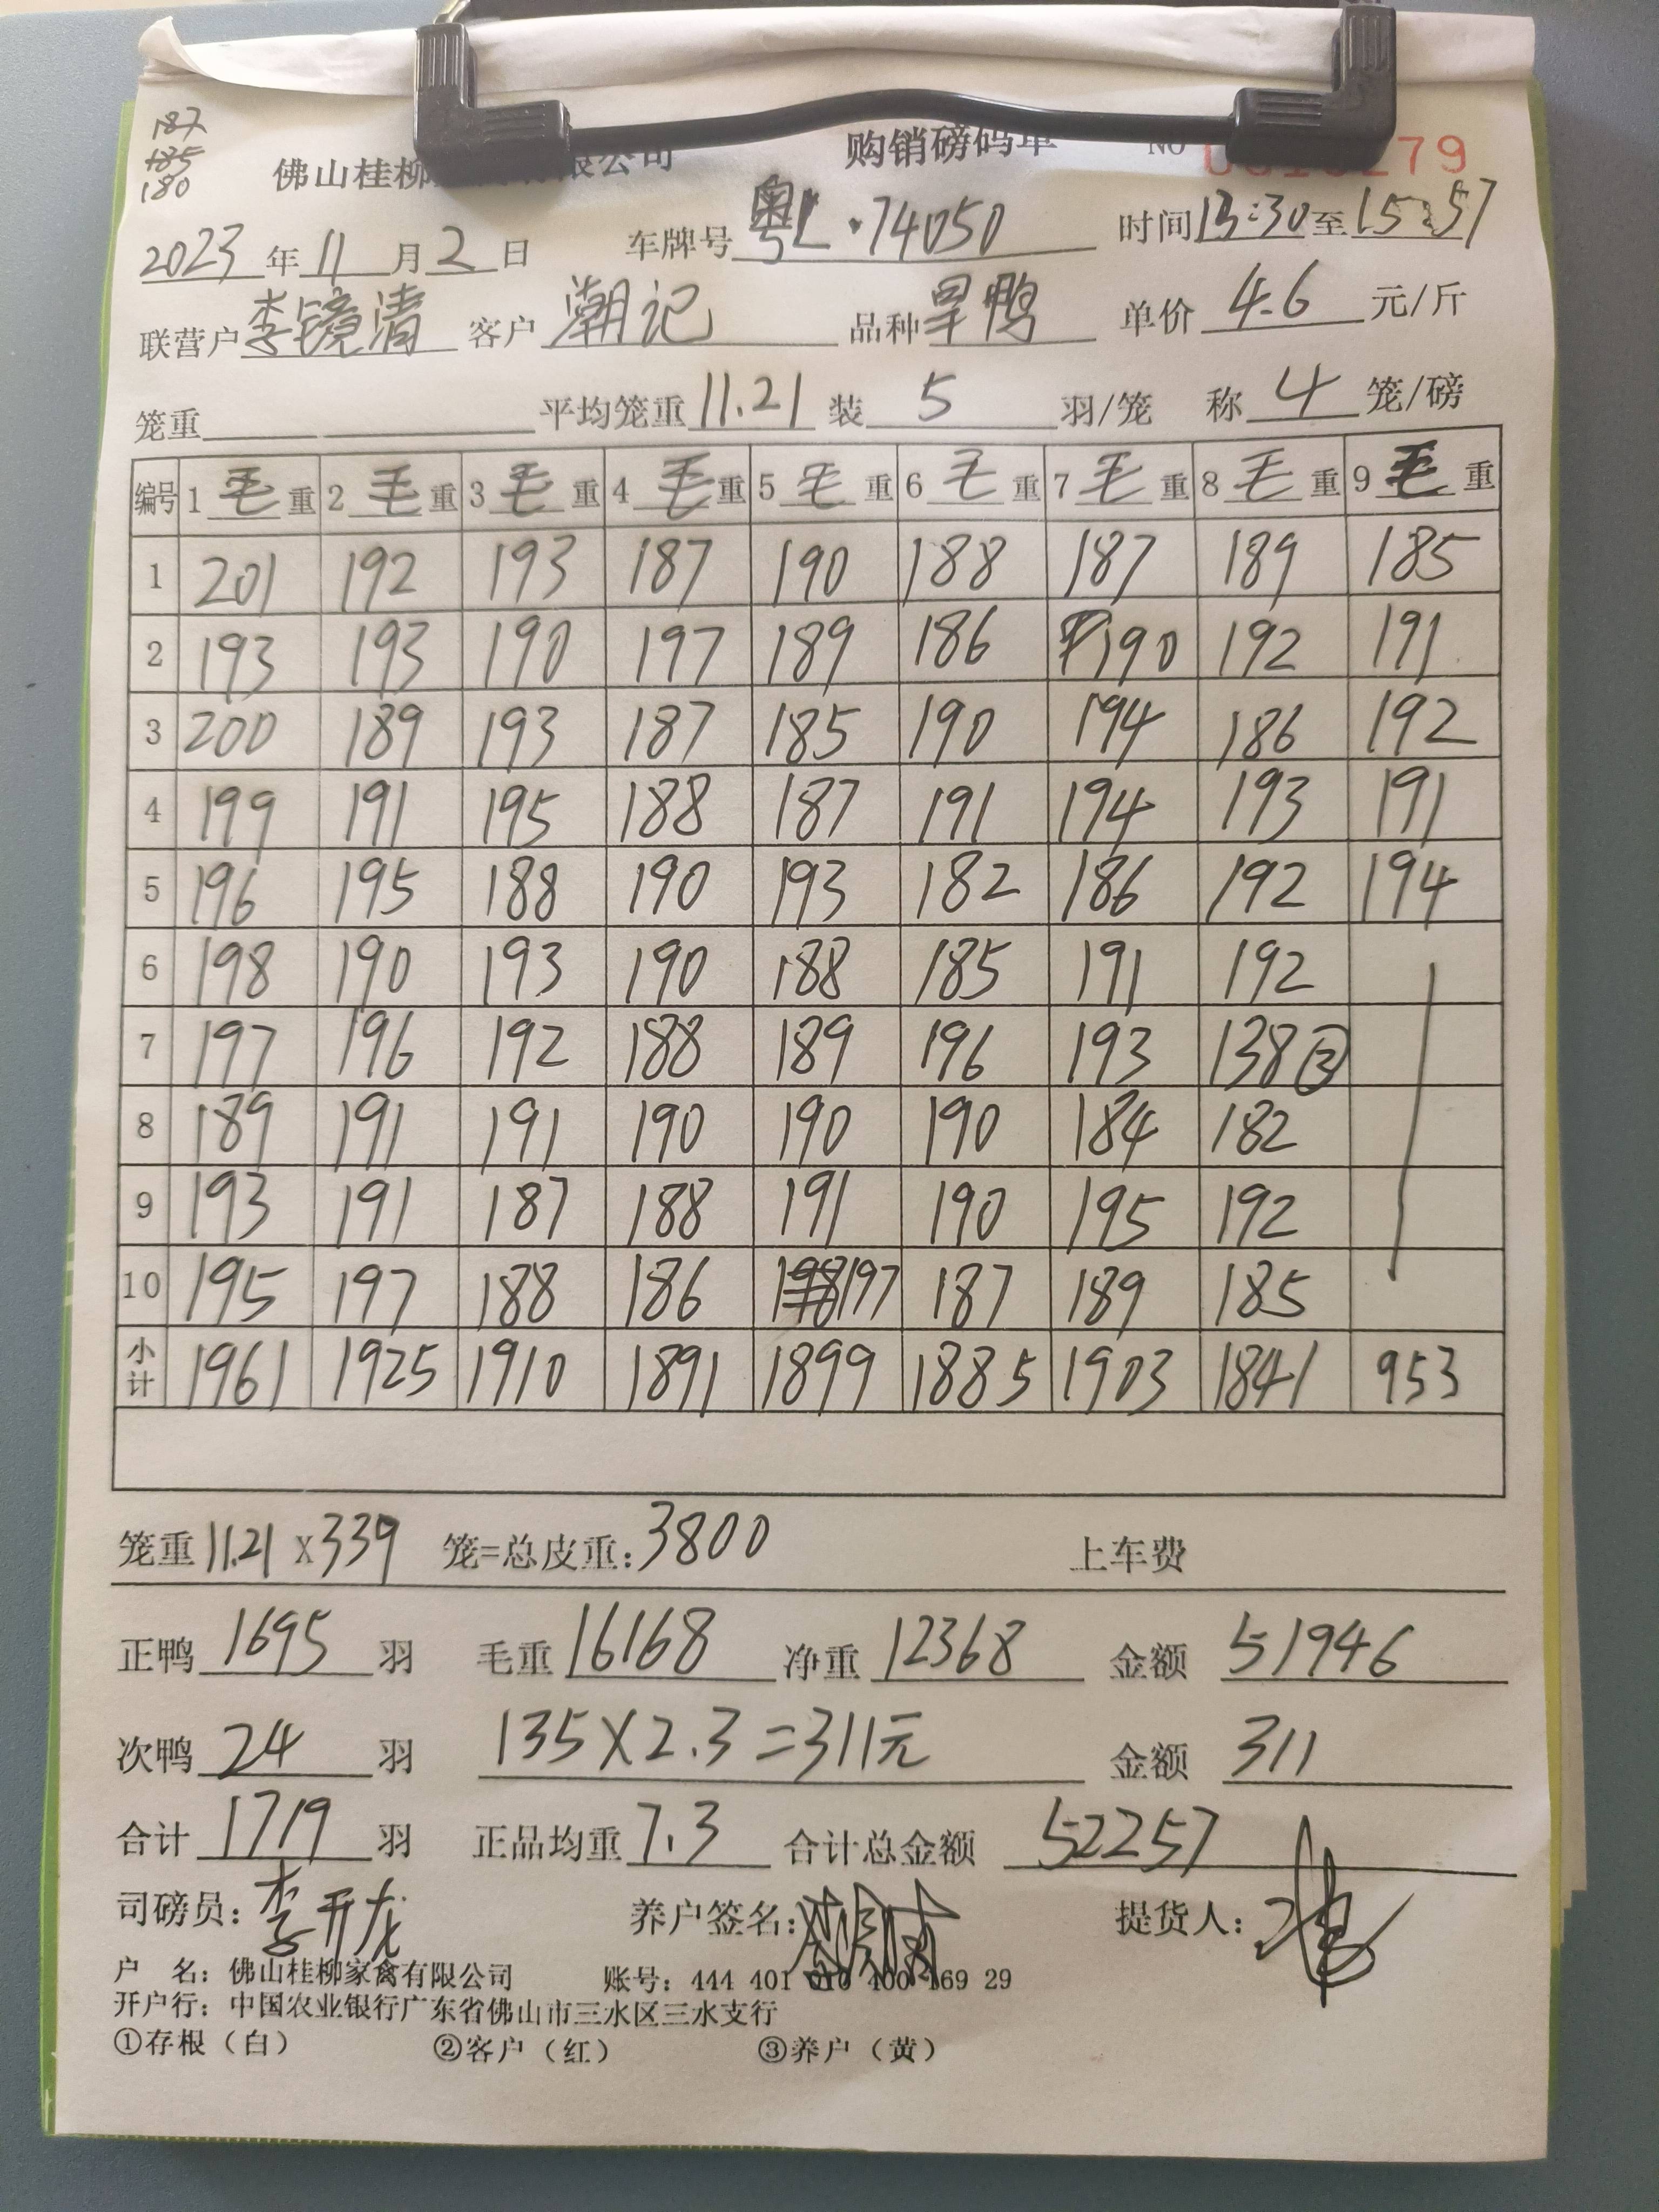 187
185
180
佛山桂柳 限公司 购销磅码单 NO 79
2023年11月2日 车牌号粤L·74050 时间13:30至15:57
联营户李镜清 客户潮记 品种旱鸭 单价4.6元/斤
笼重 平均笼重11.21 装5羽/笼 称4笼/磅
编号 1毛重 2毛重 3毛重 4毛重 5毛重 6毛重 7毛重 8毛重 9毛重
1 201 192 193 187 190 188 187 189 185
2 193 193 190 197 189 186 190 192 191
3 200 189 193 187 185 190 194 186 192
4 199 191 195 188 187 191 194 193 191
5 196 195 188 190 193 182 186 192 194
6 198 190 193 190 188 185 191 192
7 197 196 192 188 189 196 193 138③
8 189 191 191 190 190 190 184 182
9 193 191 187 188 191 190 195 192
10 195 197 188 186 197 187 189 185
小计 1961 1925 1910 1891 1899 1885 1903 1841 953
笼重11.21×339 笼=总皮重:3800 上车费
正鸭1695羽 毛重16168 净重12368 金额51946
次鸭24羽 135×2.3=311元 金额311
合计1719羽 正品均重7.3 合计总金额52257
司磅员:李开龙 养户签名: 提货人:
户 名:佛山桂柳家禽有限公司 账号:444 401 010 400 169 29
开户行:中国农业银行广东省佛山市三水区三水支行
①存根(白) ②客户(红) ③养户(黄)